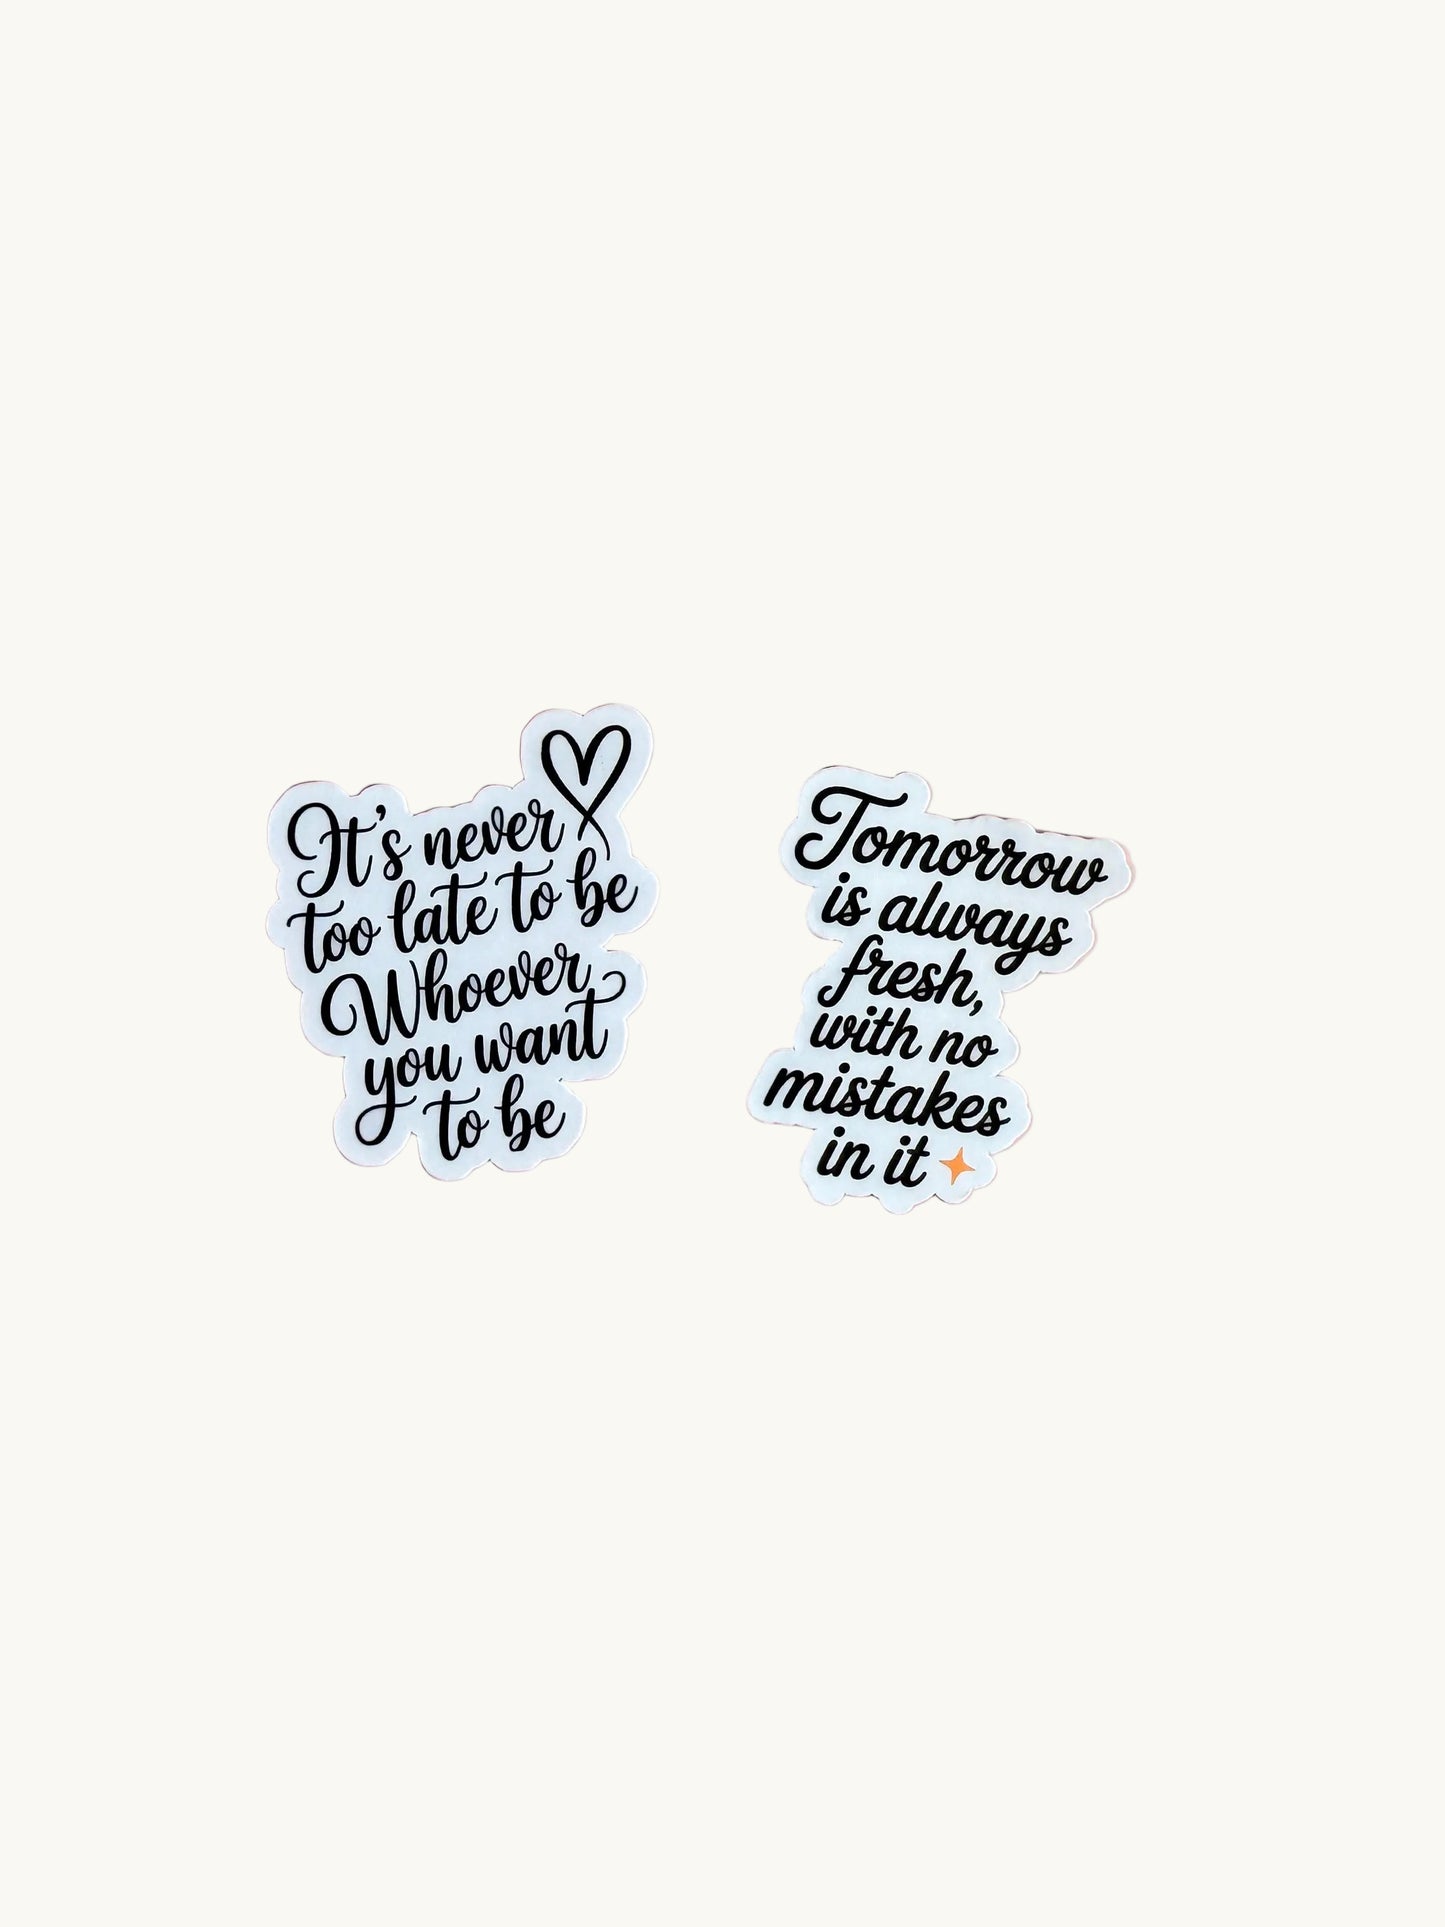 It's never
too late to be
Whoever
you want
to be
Tomorrow
is always
fresh,
with no
mistakes
in it